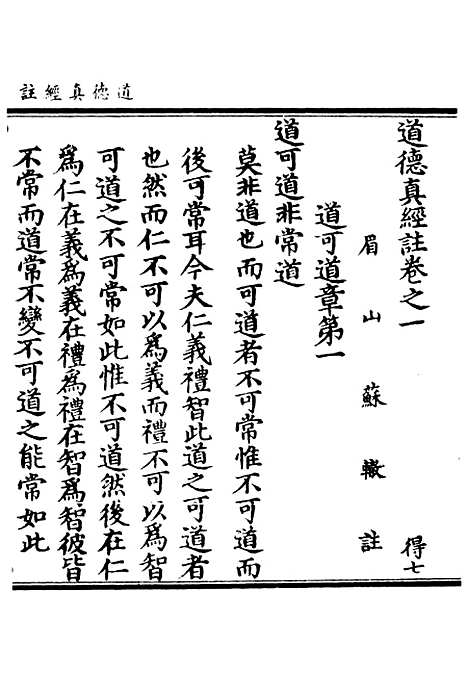 道德真經註
道德真經註卷之一 得七
眉山蘇轍註
道可道章第一
道可道非常道
莫非道也而可道者不可常惟不可道而
後可常耳今夫仁義禮智此道之可道者
也然而仁不可以爲義而禮不可以爲智
可道之不可常如此惟不可道然後在仁
爲仁在義爲義在禮爲禮在智爲智彼皆
不常而道常不變不可道之能常如此